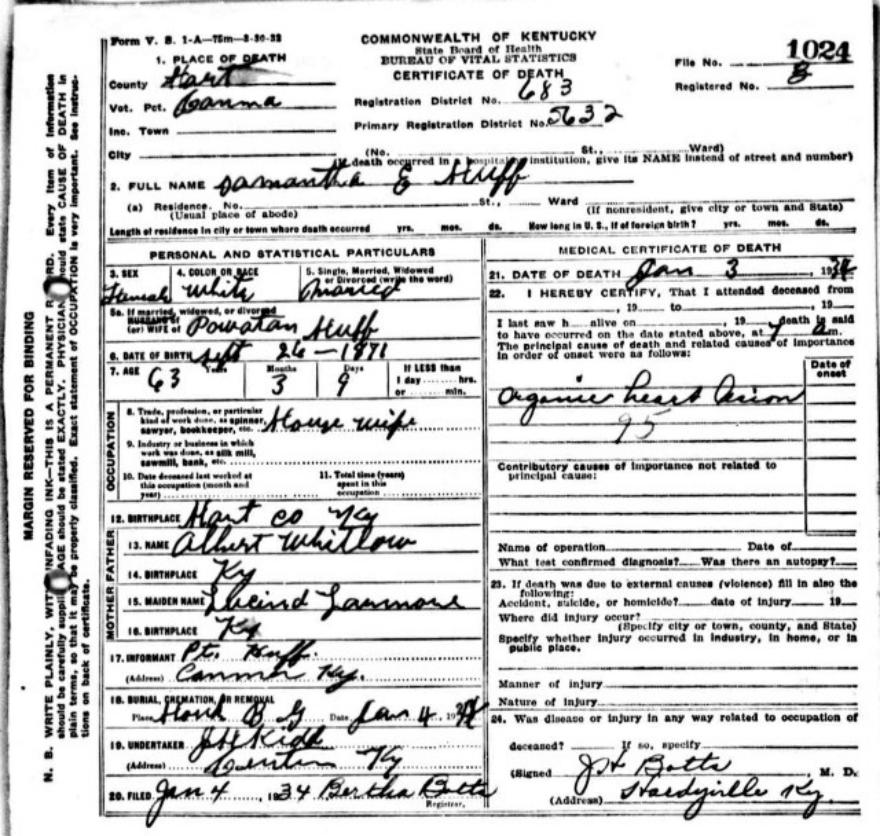 Form V. S. 1-A—75m—3-30-32
COMMONWEALTH OF KENTUCKY
State Board of Health
BUREAU OF VITAL STATISTICS
CERTIFICATE OF DEATH
File No. 1024
Registered No. 3
1. PLACE OF DEATH
County Hart
Vot. Pct. Canma
Inc. Town
City
Registration District No. 683
Primary Registration District No. 5632
(No. St., Ward)
death occurred in a hospital institution, give its NAME instead of street and number)
2. FULL NAME Samantha E Huff
(a) Residence. No. St., Ward
(Usual place of abode) (If nonresident, give city or town and State)
Length of residence in city or town where death occurred yrs. mos. ds. How long in U. S., if of foreign birth? yrs. mos. ds.
PERSONAL AND STATISTICAL PARTICULARS
3. SEX Female
4. COLOR OR RACE White
5. Single, Married, Widowed or Divorced (write the word) Married
5a. If married, widowed, or divorced
HUSBAND of
(or) WIFE of Powatan Huff
6. DATE OF BIRTH Sept 26—1871
7. AGE 63 Years 3 Months 9 Days If LESS than 1 day hrs. or min.
OCCUPATION
8. Trade, profession, or particular kind of work done, as spinner, sawyer, bookkeeper, etc. House wife
9. Industry or business in which work was done, as silk mill, sawmill, bank, etc.
10. Date deceased last worked at this occupation (month and year)
11. Total time (years) spent in this occupation
12. BIRTHPLACE Hart co Ky
FATHER
13. NAME Albert Whitlow
14. BIRTHPLACE Ky
MOTHER
15. MAIDEN NAME Lucind
16. BIRTHPLACE Ky
17. INFORMANT Pt. Huff
(Address) Canmer Ky.
18. BURIAL, CREMATION, OR REMOVAL
Place B G Date Jan 4, 1934
19. UNDERTAKER Kidd
(Address) Ky
20. FILED Jan 4, 1934 Bertha Botts
Registrar.
MEDICAL CERTIFICATE OF DEATH
21. DATE OF DEATH Jan 3, 1934
22. I HEREBY CERTIFY, That I attended deceased from
, 19 to , 19
I last saw h alive on , 19 , death is said
to have occurred on the date stated above, at 7 am.
The principal cause of death and related causes of importance
in order of onset were as follows:
Date of onset
organic heart
95
Contributory causes of importance not related to
principal cause:
Name of operation Date of
What test confirmed diagnosis? Was there an autopsy?
23. If death was due to external causes (violence) fill in also the
following:
Accident, suicide, or homicide? date of injury 19
Where did injury occur?
(Specify city or town, county, and State)
Specify whether injury occurred in industry, in home, or in
public place.
Manner of injury
Nature of injury
24. Was disease or injury in any way related to occupation of
deceased? If so, specify
(Signed J H Botts M. D.
(Address) Hardyville Ky.
MARGIN RESERVED FOR BINDING
N. B. WRITE PLAINLY, WITH UNFADING INK—THIS IS A PERMANENT RECORD. Every item of information
should be carefully supplied. AGE should be stated EXACTLY. PHYSICIANS should state CAUSE OF DEATH in
plain terms, so that it may be properly classified. Exact statement of OCCUPATION is very important. See instruc-
tions on back of certificate.